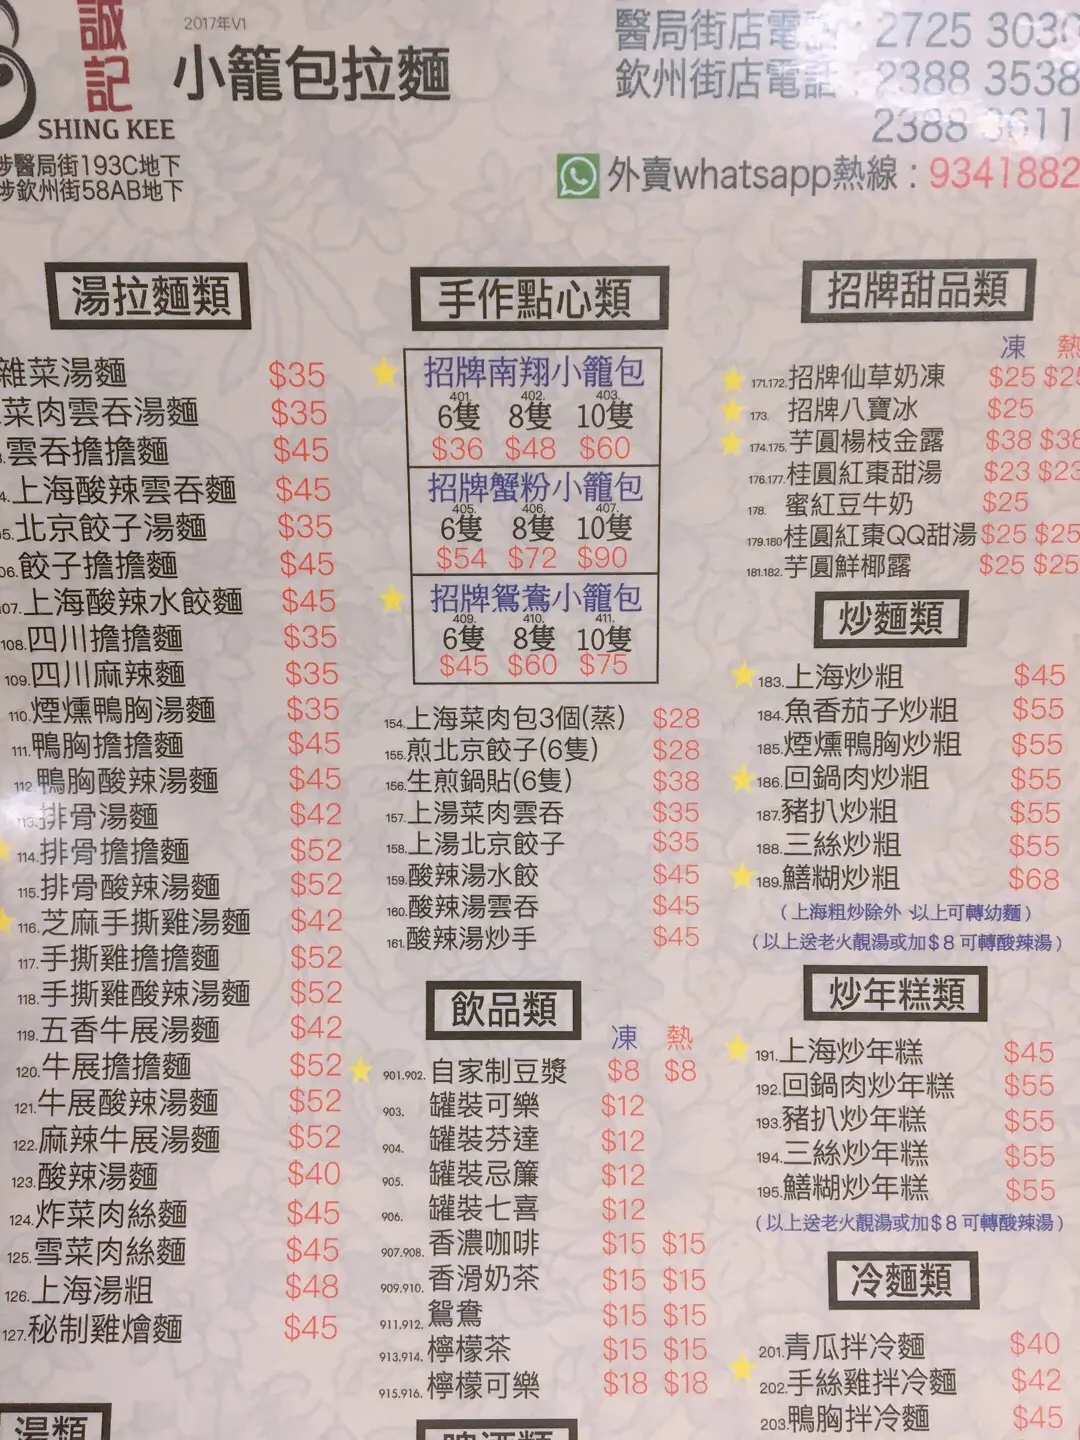 誠記
SHING KEE
2017年V1
小籠包拉麵
醫局街店電話：2725 303
欽州街店電話：2388 3538
2388 3611
涉醫局街193C地下
涉欽州街58AB地下
外賣whatsapp熱線：9341882
湯拉麵類
雜菜湯麵 $35
菜肉雲吞湯麵 $35
雲吞擔擔麵 $45
4.上海酸辣雲吞麵 $45
05.北京餃子湯麵 $35
06.餃子擔擔麵 $45
07.上海酸辣水餃麵 $45
108.四川擔擔麵 $35
109.四川麻辣麵 $35
110.煙燻鴨胸湯麵 $35
111.鴨胸擔擔麵 $45
112.鴨胸酸辣湯麵 $45
113.排骨湯麵 $42
114.排骨擔擔麵 $52
115.排骨酸辣湯麵 $52
116.芝麻手撕雞湯麵 $42
117.手撕雞擔擔麵 $52
118.手撕雞酸辣湯麵 $52
119.五香牛展湯麵 $42
120.牛展擔擔麵 $52
121.牛展酸辣湯麵 $52
122.麻辣牛展湯麵 $52
123.酸辣湯麵 $40
124.炸菜肉絲麵 $45
125.雪菜肉絲麵 $45
126.上海湯粗 $48
127.秘制雞燴麵 $45
湯類
手作點心類
招牌南翔小籠包
401. 402. 403.
6隻 8隻 10隻
$36 $48 $60
招牌蟹粉小籠包
405. 406. 407.
6隻 8隻 10隻
$54 $72 $90
招牌鴛鴦小籠包
409. 410. 411.
6隻 8隻 10隻
$45 $60 $75
154.上海菜肉包3個(蒸) $28
155.煎北京餃子(6隻) $28
156.生煎鍋貼(6隻) $38
157.上湯菜肉雲吞 $35
158.上湯北京餃子 $35
159.酸辣湯水餃 $45
160.酸辣湯雲吞 $45
161.酸辣湯炒手 $45
飲品類
凍 熱
901.902.自家制豆漿 $8 $8
903. 罐裝可樂 $12
904. 罐裝芬達 $12
905. 罐裝忌簾 $12
906. 罐裝七喜 $12
907.908.香濃咖啡 $15 $15
909.910.香滑奶茶 $15 $15
911.912.鴛鴦 $15 $15
913.914.檸檬茶 $15 $15
915.916.檸檬可樂 $18 $18
啤酒類
招牌甜品類
凍 熱
171.172.招牌仙草奶凍 $25 $25
173. 招牌八寶冰 $25
174.175.芋圓楊枝金露 $38 $38
176.177.桂圓紅棗甜湯 $23 $23
178. 蜜紅豆牛奶 $25
179.180桂圓紅棗QQ甜湯 $25 $25
181.182.芋圓鮮椰露 $25 $25
炒麵類
183.上海炒粗 $45
184.魚香茄子炒粗 $55
185.煙燻鴨胸炒粗 $55
186.回鍋肉炒粗 $55
187.豬扒炒粗 $55
188.三絲炒粗 $55
189.鱔糊炒粗 $68
（上海粗炒除外、以上可轉幼麵）
（以上送老火靚湯或加$8可轉酸辣湯）
炒年糕類
191.上海炒年糕 $45
192.回鍋肉炒年糕 $55
193.豬扒炒年糕 $55
194.三絲炒年糕 $55
195.鱔糊炒年糕 $55
（以上送老火靚湯或加$8可轉酸辣湯）
冷麵類
201.青瓜拌冷麵 $40
202.手絲雞拌冷麵 $42
203.鴨胸拌冷麵 $45